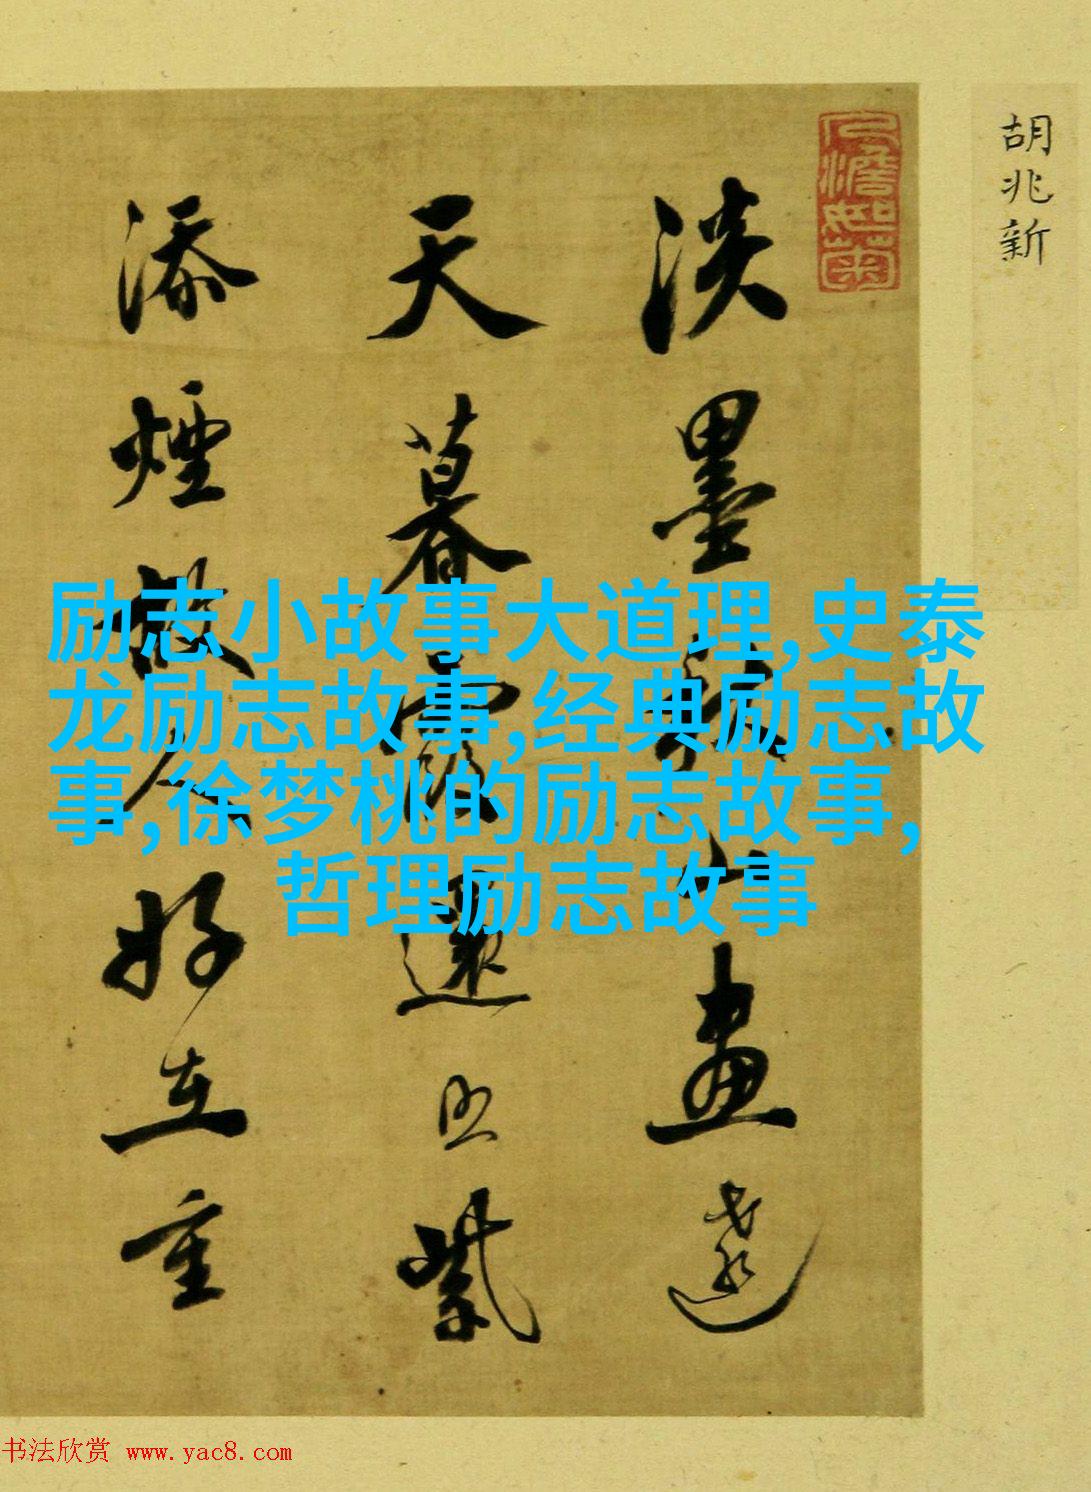 胡兆新
淡墨秋山画遠
天暮霞還照紫
添煙故人好在重
励志小故事大道理,史泰
龙励志故事,经典励志故
事,徐梦桃的励志故事,
哲理励志故事
书法欣赏 www.yac8.com